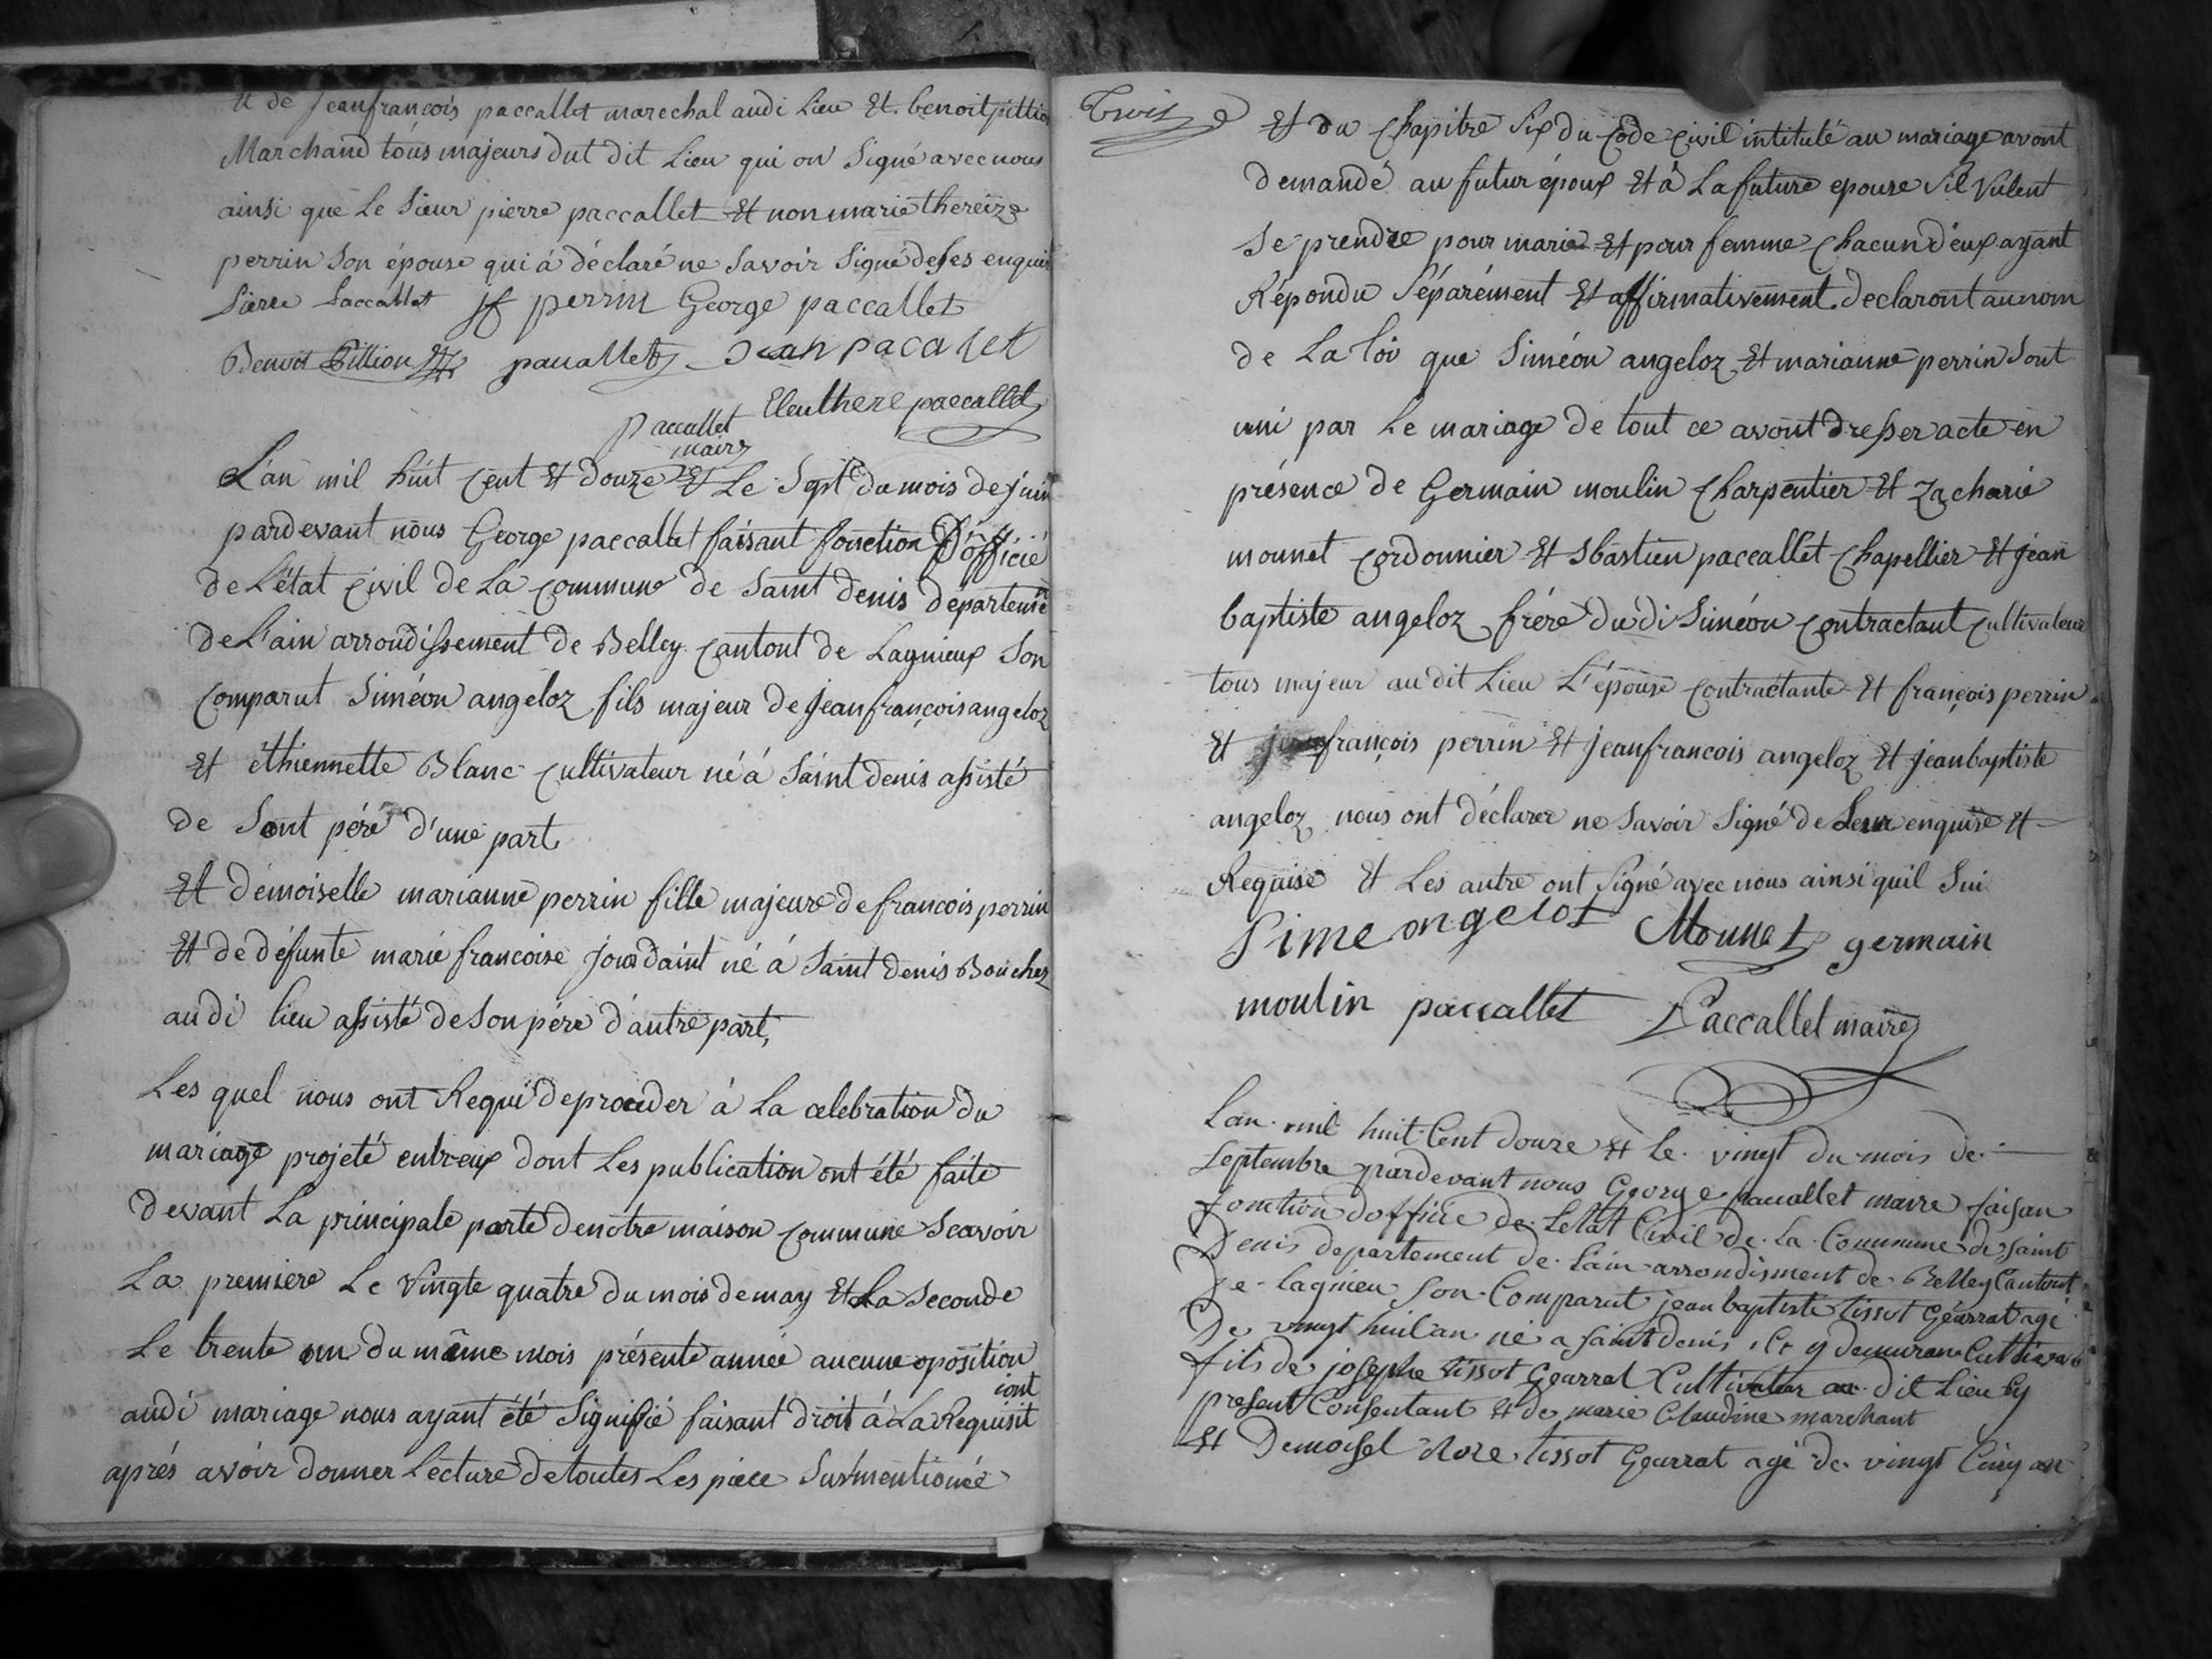 et de jeanfrançois paccallet marechal audi Lieu Et benoit pittion
Marchand tous majeurs dut dit Lieu qui on Signé avec nous
ainsi que Le Sieur pierre paccallet Et non marie thereize
perrin Son épouse qui á déclaré ne Savoir Signé de ses enquis
Pierre Paccallet jf perrin George paccallet
Benoit Pillion paccallet Jean pacalet
Eleuthere paccallet
Paccallet
maire
L'an mil huit Cent Et douze Et Le Sept du mois de juin
pardevant nous George paccallet faisant fonction D'officié
de L'état Civil de La Commune de Saint denis département
de L'ain arrondissement de Belley Cantont de Lagnieux Son
Comparut Siméon angeloz fils majeur de jeanfrançois angeloz
Et éthiennette Blanc Cultivateur né á Saint denis assisté
de Sont péré d'une part
Et démoiselle marianne perrin fille majeure de francois perrin
Et de défunte marie francoise jourdaint né á Saint denis Bouchez
audi lieu assisté de Son pére d'autre part,
Les quel nous ont Requi de proceder á La celebration du
mariage projeté entreux dont Les publication ont été faite
devant La principale porte de notre maison Commune Scavoir
La premiere Le Vingte quatre du mois de may Et La Seconde
Le trente un du même mois présente année aucune oposition
audi mariage nous ayant été Signifié faisant droit á La Requisit
iont
aprés avoir donner Lecture de toutes Les piece Sus'mentionée
Trois
Et du Chapitre Six du Code Civil intitulé au mariage avont
demandé au futur époux Et á La future epouse Sil Vulent
Se prendre pour marie Et pour femme Chacun d'eux ayant
Répondu Séparément Et affirmativement declaront au nom
de La loi que Siméon angeloz Et marianne perrin Sont
uni par Le mariage de tout ce avont dresser acte en
présence de Germain moulin Charpentier Et Zacharie
mounet Cordonnier Et Sbastien paccallet Chapellier Et jean
baptiste angeloz frére du di Siméon Contractant Cultivateur
tous majeur au dit Lieu L'épouse Contractante Et françois perrin
Et jeanfrançois perrin Et jeanfrancois angeloz Et jeanbaptiste
angeloz nous ont déclarer ne Savoir Signé de Leur enquise Et
Requise Et Les autre ont Signé avec nous ainsi quil Sui
Simeongelot Mounet germain
moulin paccallet Paccallet maire
Lan mil huit Cent douze Et le vingt du mois de
Septembre pardevant nous George paccallet maire faisan
fonction doffice de Letat Civil de La Commune de Saint
Denis departement de Lain arrondisment de Belley Cantont
De Lagnieu Son Comparut jean baptiste tissot Géurrat agé
De vingt huit an né a Saint denis Et y demurant Cultivat
fils de josephe tissot Geurrat Cultivateur au dit Lieu Cy
present Consentant Et de marie Claudine marchant
Et Demoisel Rose tissot Geurrat agé de vingt Cinq an